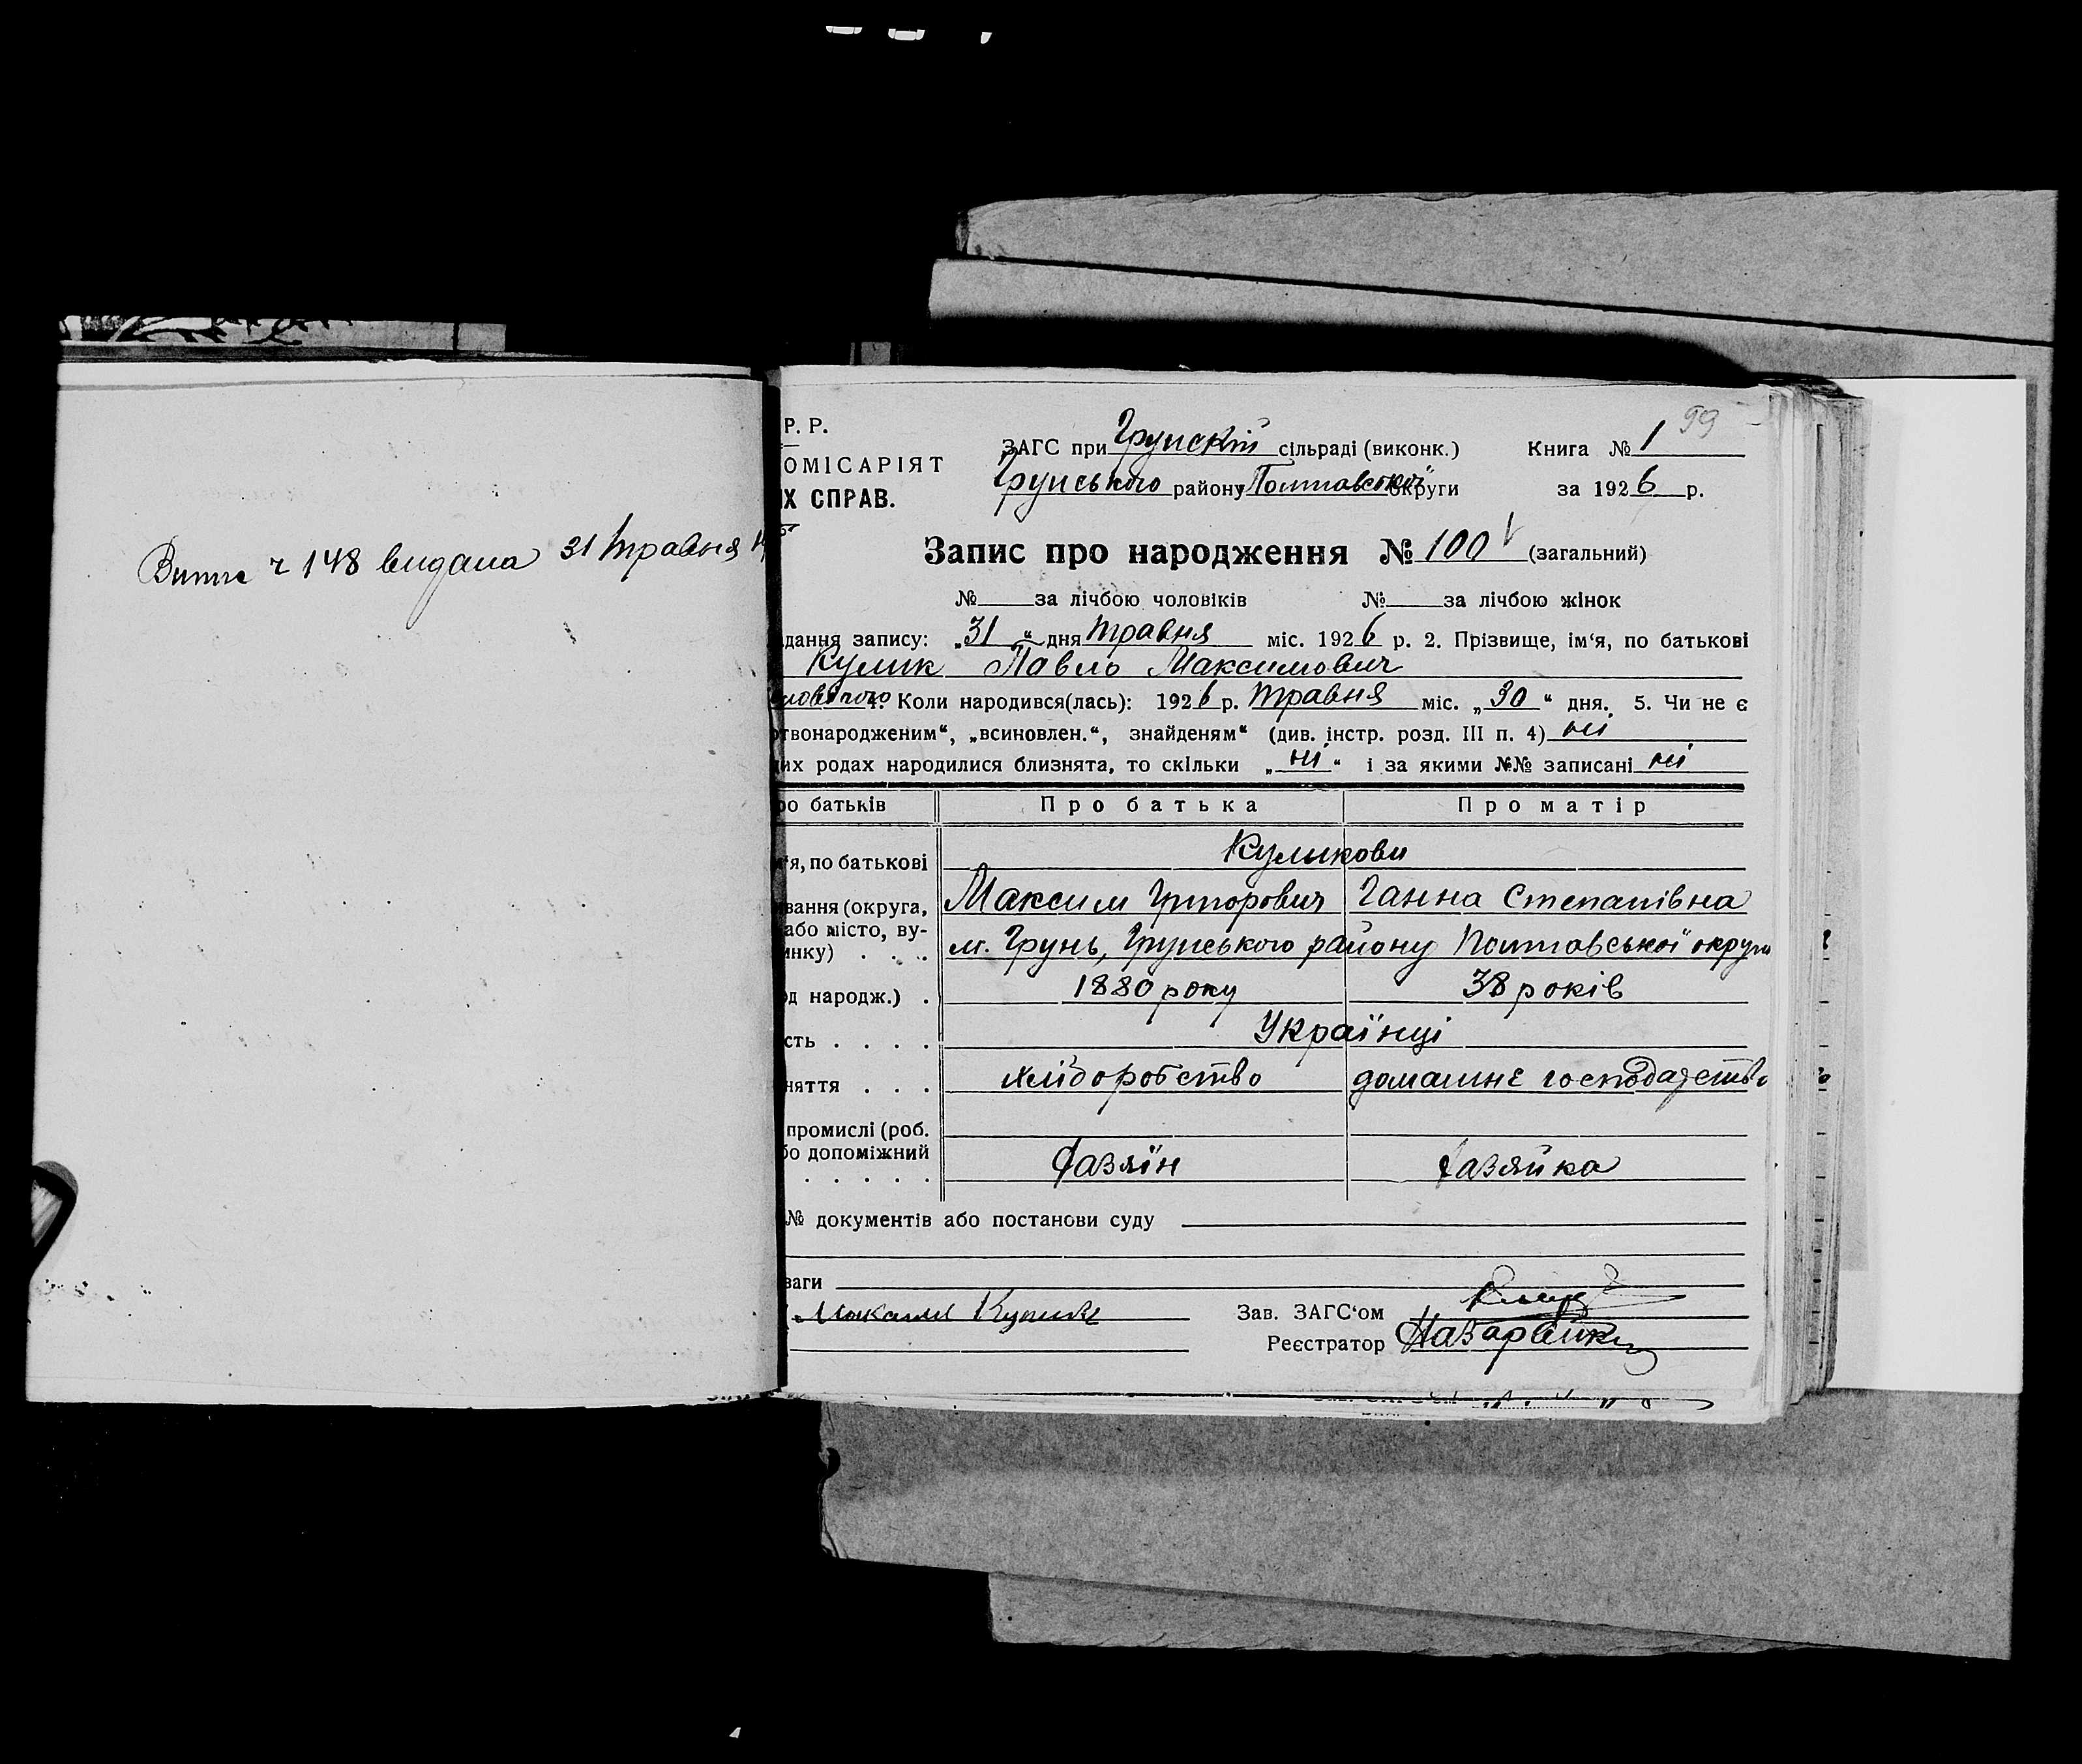 ч 148 видана 31 травня
99
Р. Р.
ЗАГС при Грунскій сільраді (виконк.) Книга № 1
ОМІСАРІЯТ
Грунського району Полтавської округи за 1926 р.
Х СПРАВ.
Запис про народження № 100 (загальний)
№ за лічбою чоловіків № за лічбою жінок
дання запису: „31“ дня травня міс. 1926 р. 2. Прізвище, ім‘я, по батькові
Кулик Павло Максимович
4. Коли народився(лась): 1926 р. травня міс. „30“ дня. 5. Чи не є
твонародженим“, „всиновлен.“, знайденям“ (див. інстр. розд. III п. 4) ні
их родах народилися близнята, то скільки „ні“ і за якими №№ записані ні
ро батьків Про батька Про матір
Куликови
‘я, по батькові
Максим Григорович Ганна Степанівна
вання (округа,
або місто, ву-
м. Грунь, Грунського району Полтавської округи
инку) . . .
1880 року 38 років
од народж.) .
Українці
сть . . . .
хліборобство домашнє господарство
няття . . .
промислі (роб.
бо допоміжний
Хазяїн Хазяйка
. . . . .
№ документів або постанови суду
ваги
Максим Кулик Зав. ЗАГС‘ом
Реєстратор